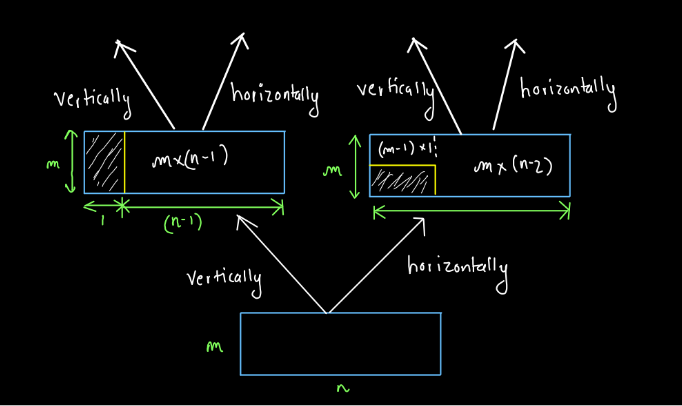 vertically
horizontally
vertically
horizontally
m
m×(n-1)
m
(m-1) × 1
m×(n-2)
1
(n-1)
vertically
horizontally
m
n